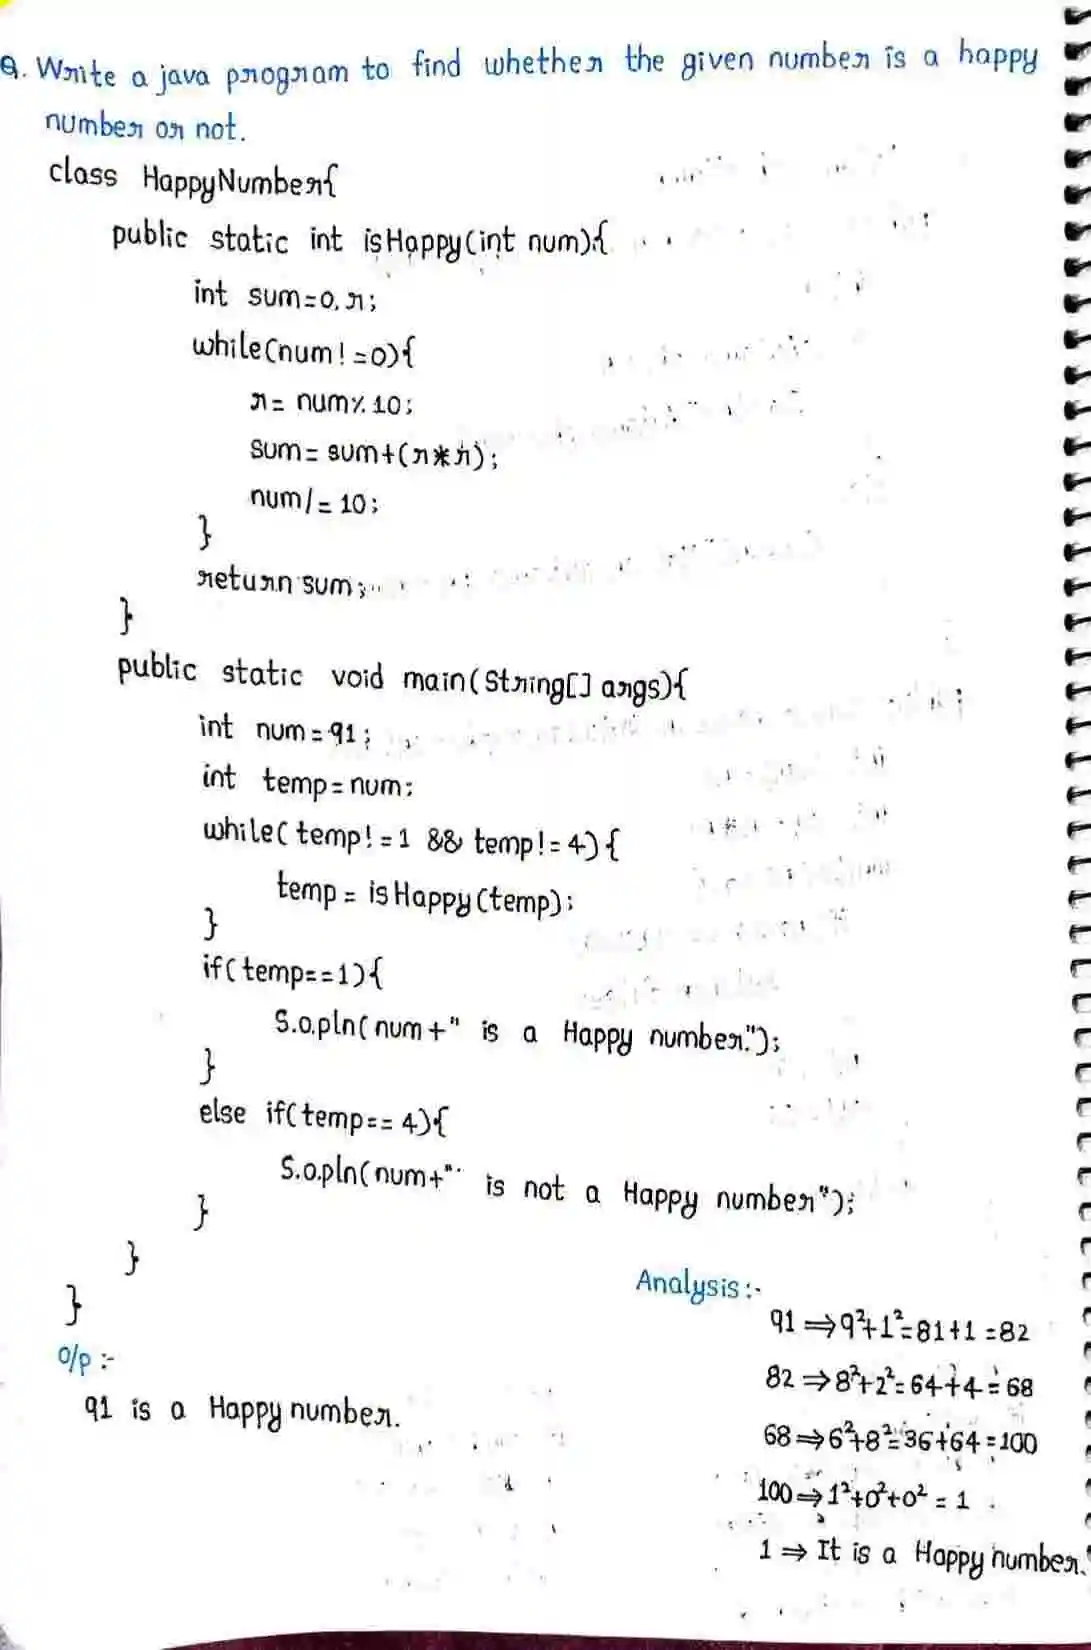 Q. Write a java program to find whether the given number is a happy
number or not.
class HappyNumber{
public static int isHappy(int num){
int sum=0, r;
while(num!=0){
r= num% 10;
sum= sum+(r*r);
num/= 10;
}
return sum;
}
public static void main(String[] args){
int num=91;
int temp=num;
while(temp!=1 && temp!=4){
temp= isHappy(temp);
}
if(temp==1){
S.o.pln(num+" is a Happy number.");
}
else if(temp==4){
S.o.pln(num+" is not a Happy number");
}
}
}
O/p :-
91 is a Happy number.
Analysis :-
91 ⇒ 9²+1²=81+1=82
82 ⇒ 8²+2²=64+4=68
68 ⇒ 6²+8²=36+64=100
100 ⇒ 1²+0²+0² = 1
1 ⇒ It is a Happy number.